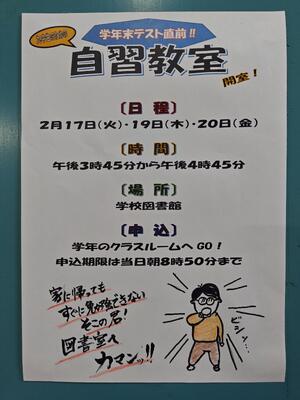 学年末テスト直前!!
自習教室
開室!
〔日程〕
2月17日(火)・19日(木)・20日(金)
〔時間〕
午後3時45分から午後4時45分
〔場所〕
学校図書館
〔申込〕
学年のクラスルームへGO!
申込期限は当日朝8時50分まで
家に帰っても
すぐに勉強できない
そこの君!
図書室へ
カマンッ!!
ビシッ…